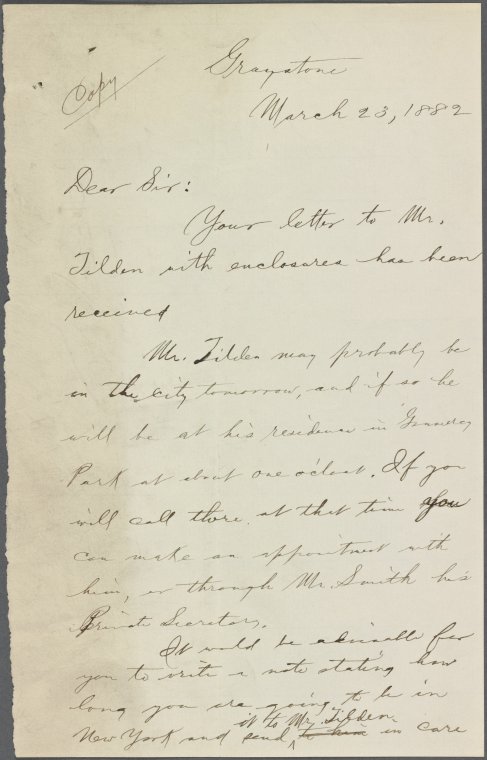 Copy
Graystone
March 23, 1882
Dear Sir:
Your letter to Mr.
Tilden with enclosures has been
received
Mr. Tilden may probably be
in the city tomorrow, and if so he
will be at his residence in Gramercy
Park at about one o'clock. If you
will call there, at that time you
can make an appointment with
him, or through Mr Smith his
Private Secretary.
It would be advisable for
you to write a note stating how
long you are going to be in
it to Mr. Tilden
New York and send to him in care